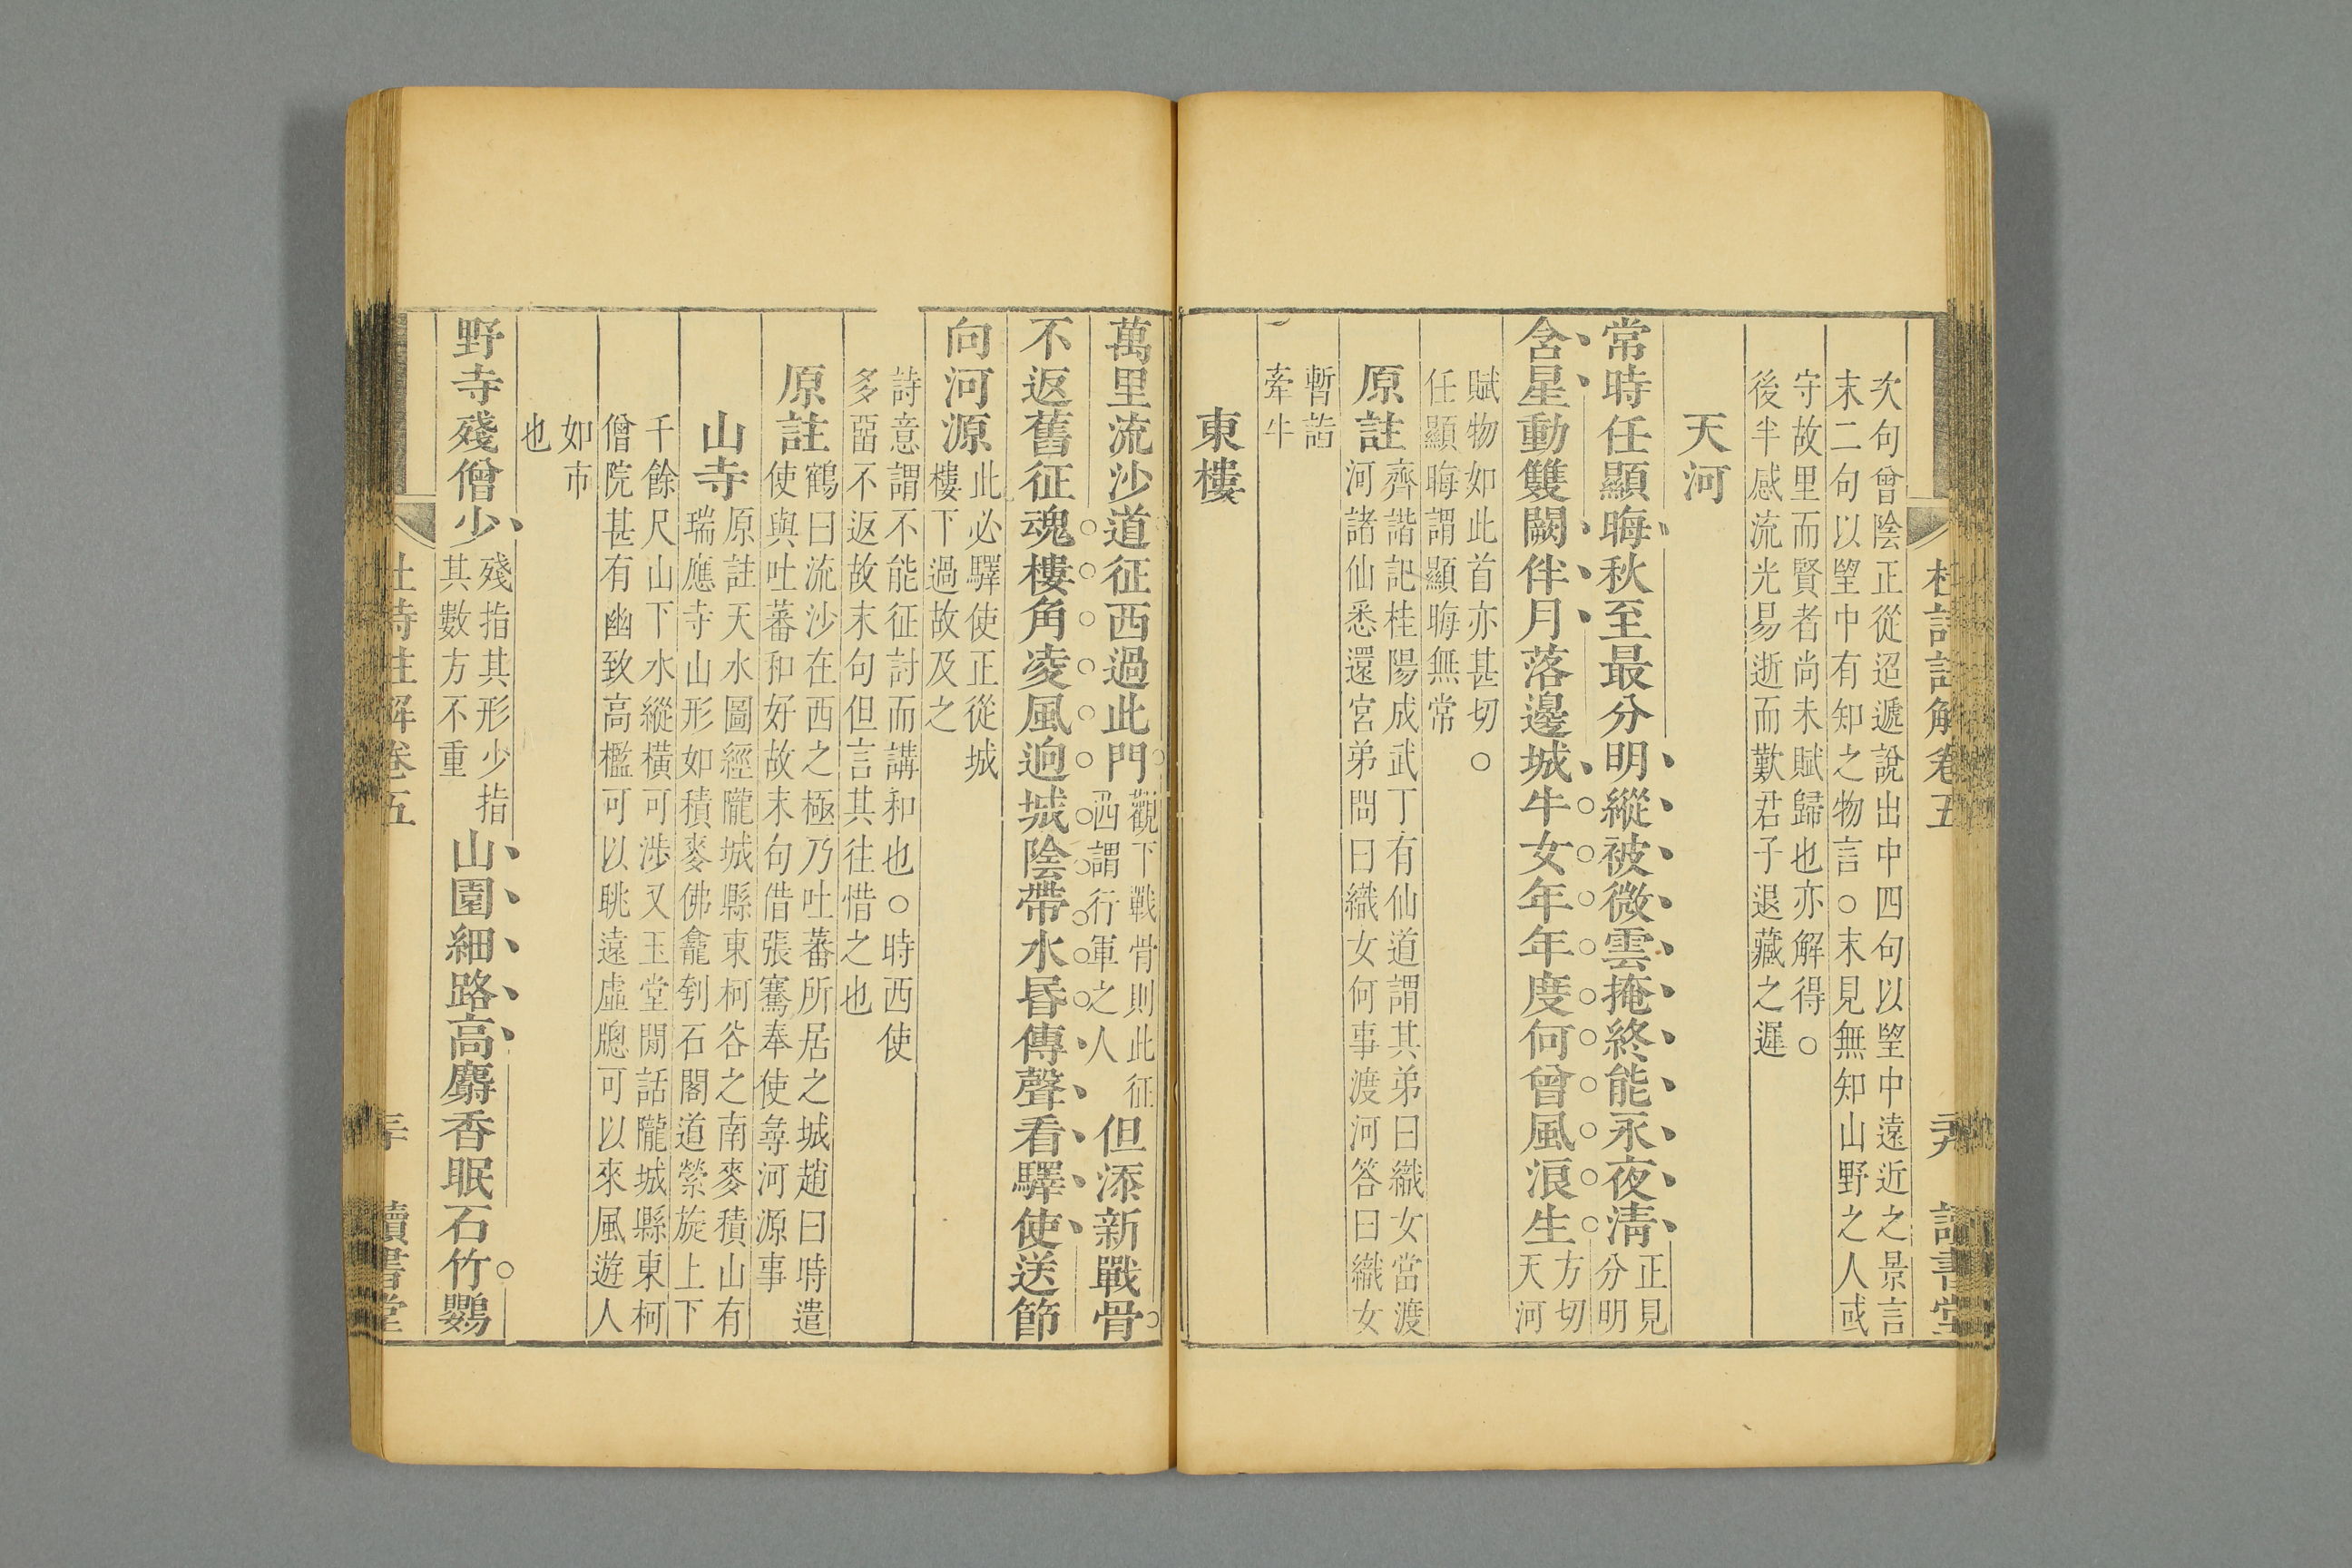 杜詩註解卷五 讀書堂
次句曾陰正從迢遞說出中四句以朢中遠近之景言
末二句以朢中有知之物言○末見無知山野之人或
守故里而賢者尚未賦歸也亦解得○
後半感流光易逝而歎君子退藏之遲
天河
常時任顯晦秋至最分明縱被微雲掩終能永夜清正見
分明
含星動雙闕伴月落邊城牛女年年度何曾風浪生方切
天河
賦物如此首亦甚切○
任顯晦謂顯晦無常
原註齊諧記桂陽成武丁有仙道謂其弟曰織女當渡
河諸仙悉還宮弟問曰織女何事渡河答曰織女
暫詣
牽牛
東樓
萬里流沙道征西過此門觀下戰骨則此征
西謂行軍之人但添新戰骨
不返舊征魂樓角凌風逈城陰帶水昏傳聲看驛使送節
向河源此必驛使正從城
樓下過故及之
詩意謂不能征討而講和也○時西使
多㽞不返故末句但言其往惜之也
原註鶴曰流沙在西之極乃吐蕃所居之城趙曰時遣
使與吐蕃和好故末句借張騫奉使尋河源事
山寺原註天水圖經隴城縣東柯谷之南麥積山有
瑞應寺山形如積麥佛龕刳石閣道縈旋上下
千餘尺山下水縱橫可涉又玉堂閒話隴城縣東柯
僧院甚有幽致高檻可以眺遠虛牕可以來風遊人
如市
也
野寺殘僧少殘指其形少指
其數方不重山園細路高麝香眠石竹鸚
杜詩註解卷五 三十 讀書堂